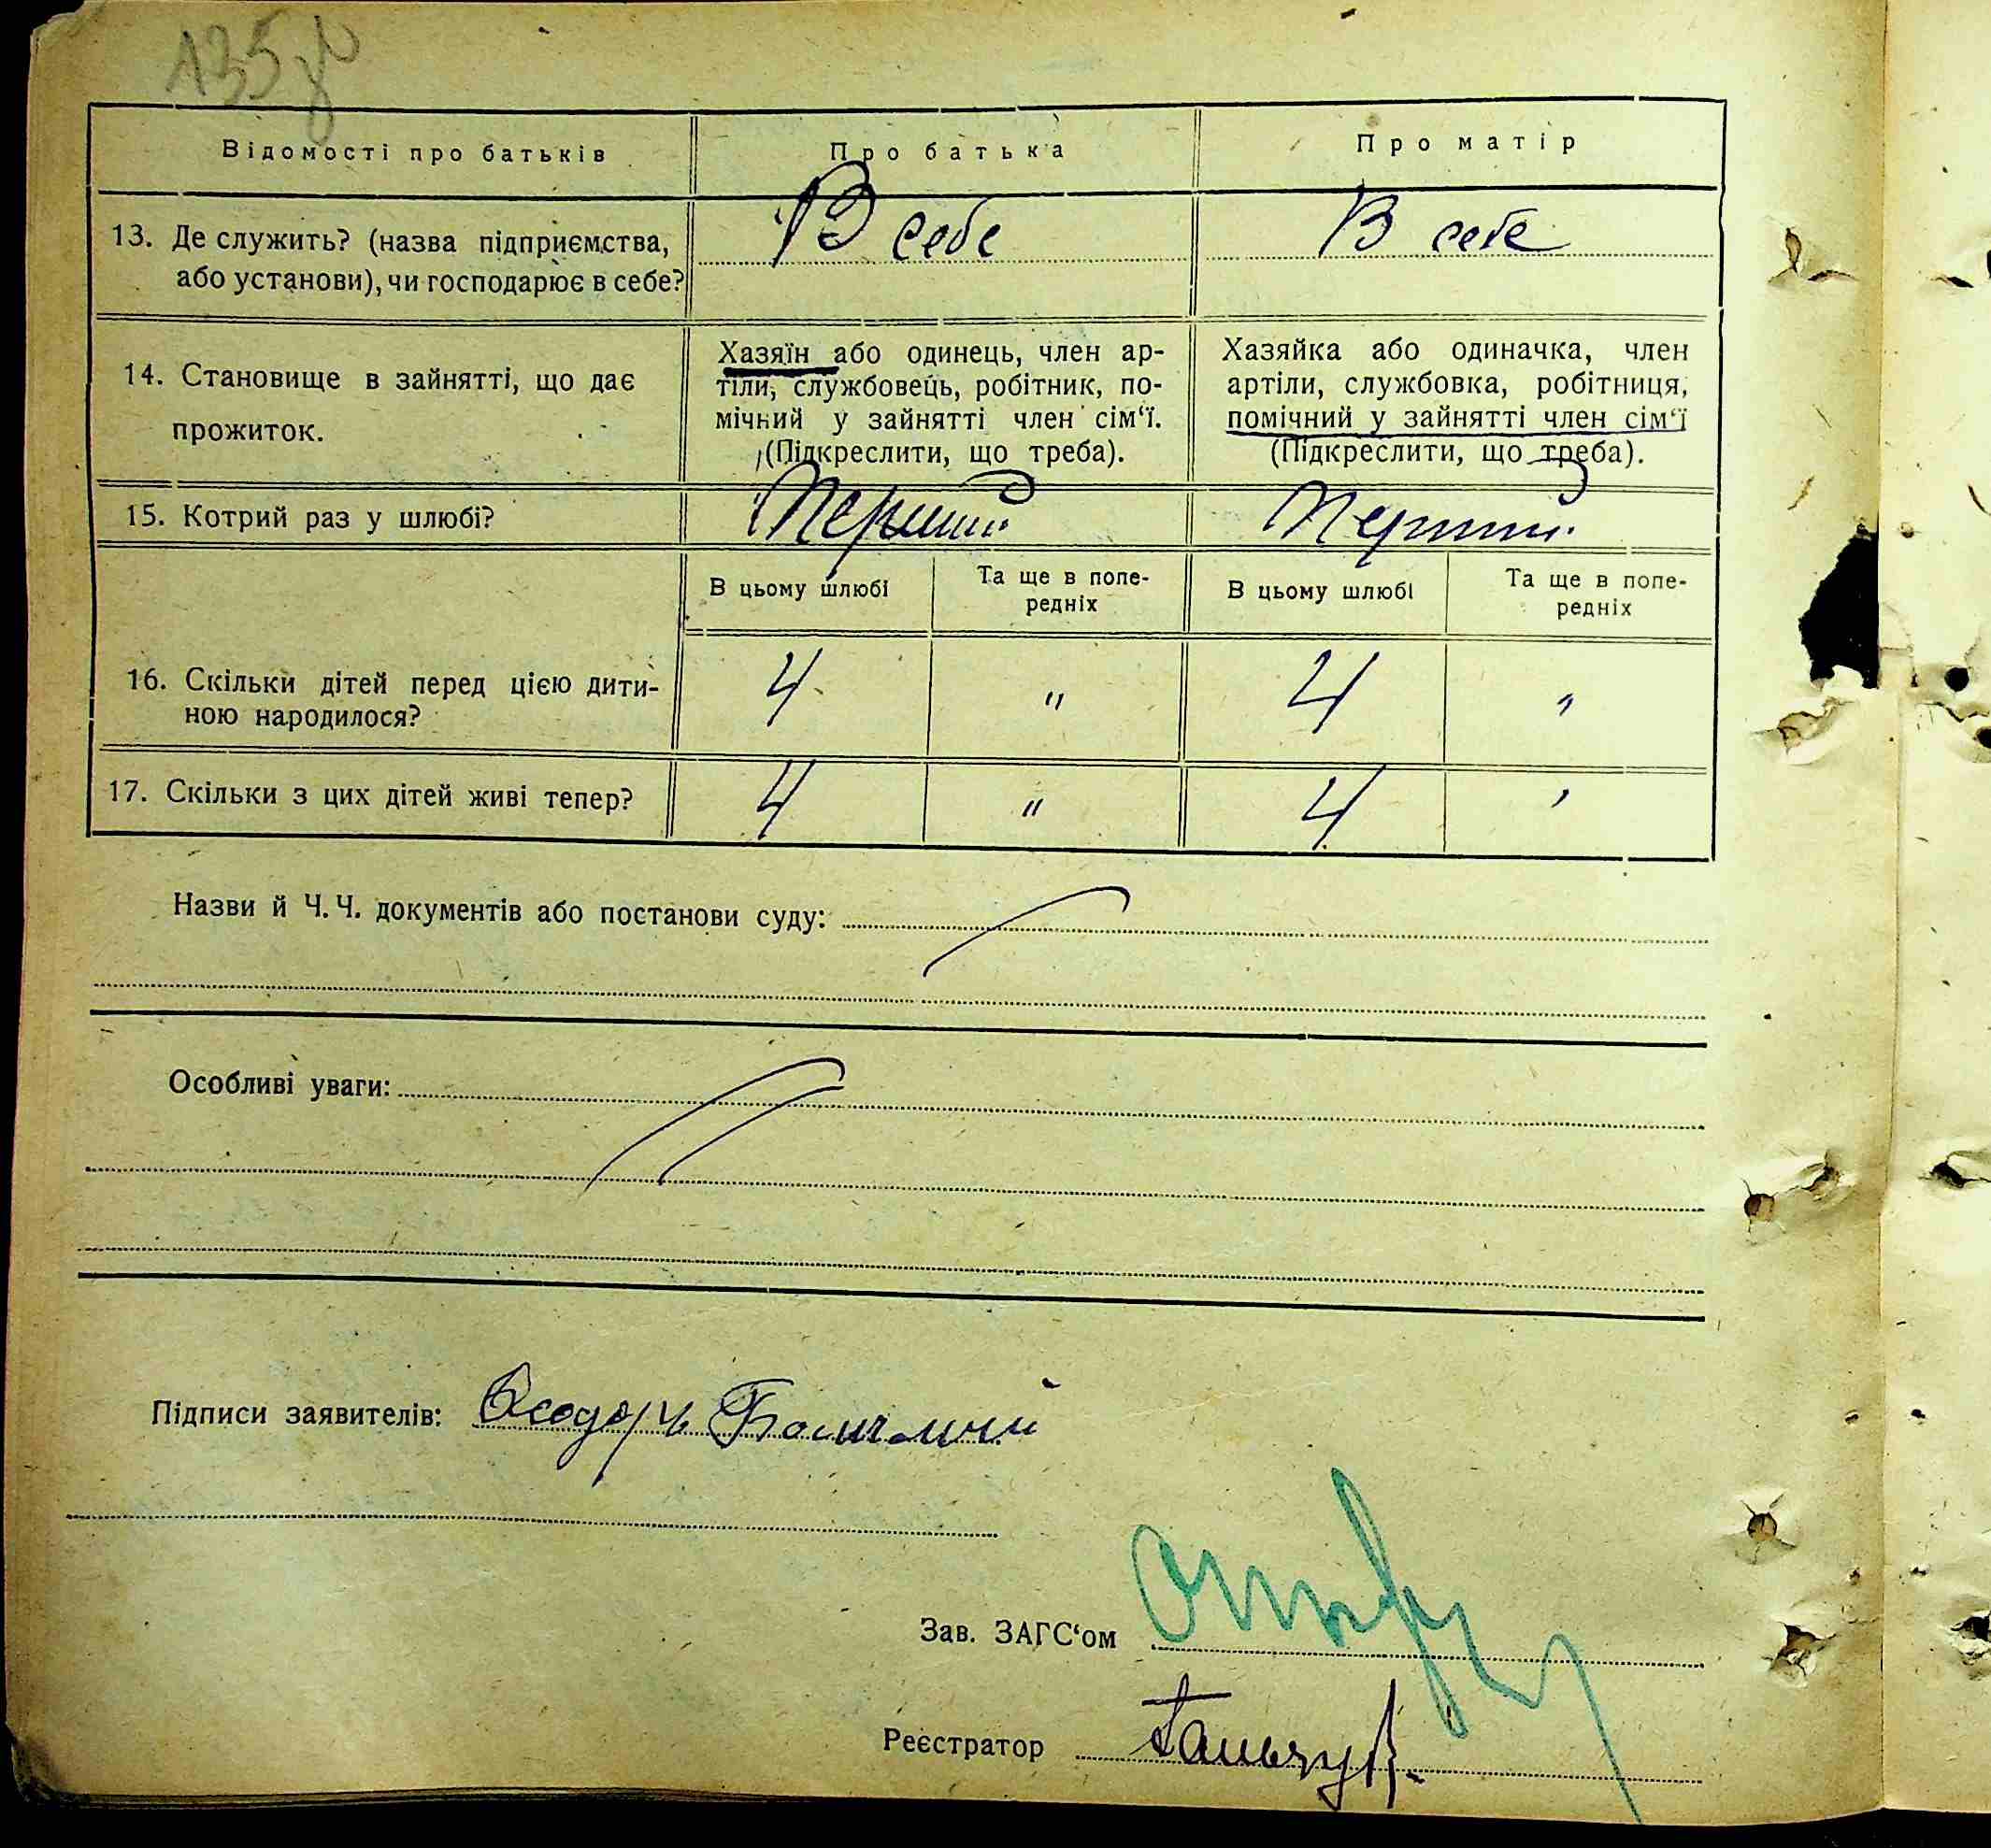 135
Відомості про батьків
Про батька
Про матір
13. Де служить? (назва підприємства,
або установи), чи господарює в себе?
В себе
В себе
14. Становище в зайнятті, що дає
прожиток.
Хазяїн або одинець, член ар-
тіли, службовець, робітник, по-
мічний у зайнятті член сім‘ї.
(Підкреслити, що треба).
Хазяйка або одиначка, член
артіли, службовка, робітниця,
помічний у зайнятті член сім‘ї
(Підкреслити, що треба).
15. Котрий раз у шлюбі?
Перший
Перший
В цьому шлюбі
Та ще в попе-
редніх
В цьому шлюбі
Та ще в попе-
редніх
16. Скільки дітей перед цією дити-
ною народилося?
4
"
4
"
17. Скільки з цих дітей живі тепер?
4
"
4
'
Назви й Ч. Ч. документів або постанови суду:
Особливі уваги:
Підписи заявителів:
Зав. ЗАГС‘ом
Реєстратор